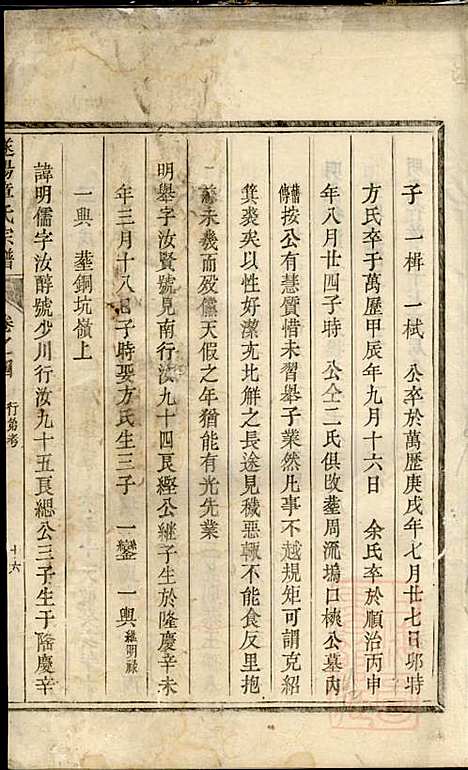 子 一楫 一栻 公卒於萬歷庚戌年七月廿七日卯時
方氏卒于萬歷甲辰年九月十六日 余氏卒於順治丙申
年八月廿四子時 公仝二氏俱改塟周流塢口樓公墓內
舊傳按公有慧質惜未習舉子業然凡事不越規矩可謂克紹
箕裘矣以性好潔尤比鮮之長途見穢惡輒不能食反里抱
恙未幾而歿儻天假之年猶能有光先業
明舉字汝賢號見南行汝九十四良經公繼子生於隆慶辛未
年三月十八日子時娶方氏生三子 一鑾 一輿繼明祿
一興 塟銅坑嶺上
諱明儒字汝醇號少川行汝九十五良總公三子生于隆慶辛
氏宗譜 行第考 十六